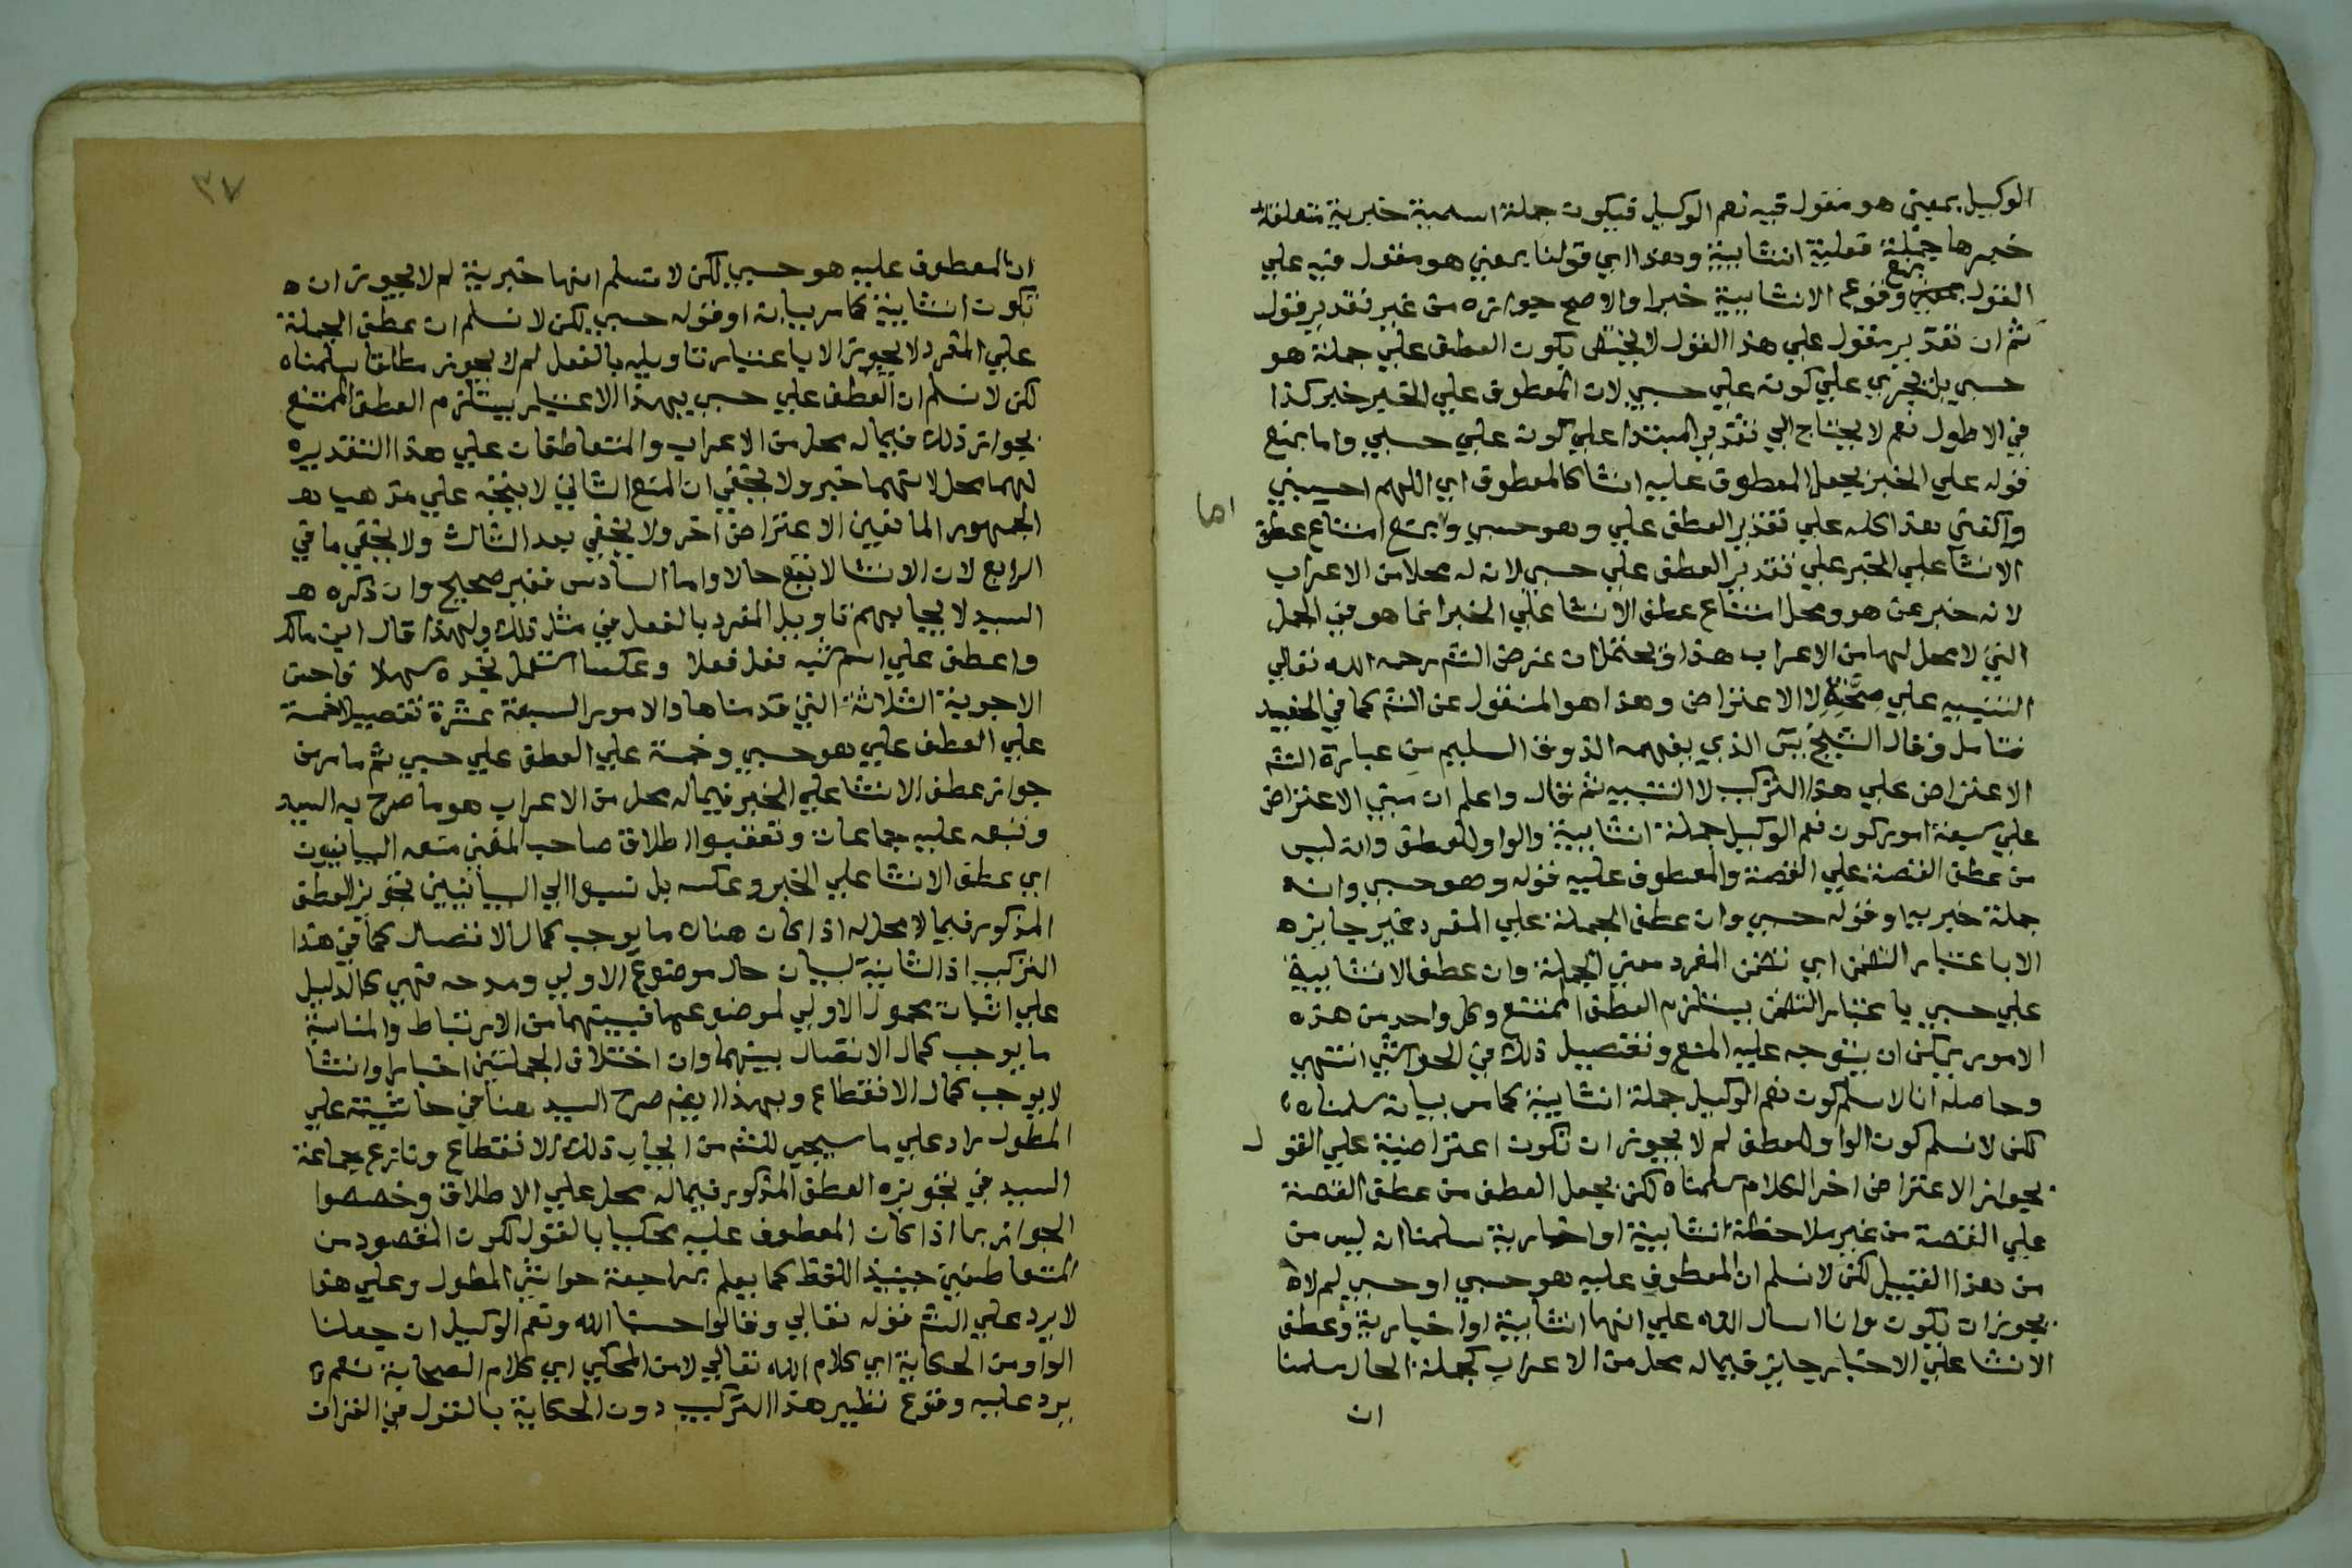 الوكيل بمعني هو مقول فيه نعم الوكيل فيكون جملة اسمية خبرية متعلقة
خبرها جملة فعلية انشايية وهذا اي قولنا بمعني هو مقول فيه علي
القول بمنع وقوع الانشايية خبرا والاصح جوازه من غير تقدير قول
ثم ان تقدير مقول علي هذا القول لا يختص بكون العطف علي جملة هو
حسبي بل يجري علي كونه علي حسبي لان المعطوف علي الخبر خبر كذا
في الاطول نعم لا يحتاج الي تقدير المبتدا علي كون علي حسبي واما بمنع
قوله علي الخبر بجعل المعطوف عليه انشا كالمعطوف اي اللهم احسبني
اما
واكفني هذا كله علي تقدير العطف علي وهو حسبي ويمنع امتناع عطف
الانشا علي الخبر علي تقدير العطف علي حسبي لانه له محلا من الاعراب
لانه خبر عن هو ومحل امتناع عطف الانشا علي الخبر انما هو في الجمل
التي لا محل لها من الاعراب هذا ويحتمل ان غرض الشم رحمه الله تعالي
التنبيه علي صحته لا الاعتراض وهذا هو المنقول عن الشم كما في الحفيد
فتامل وقال الشيخ يس الذي يفهمه الذوق السليم من عبارة الشم
الاعتراض علي هذا التركيب لا التنبيه ثم قال واعلم ان مبني الاعتراض
علي سبعة امور كون نعم الوكيل جملة انشايية والواو للعطف وانه ليس
من عطف القصة علي القصة والمعطوف عليه قوله وهو حسبي وانه
جملة خبرية او قوله حسبي وان عطف الجملة علي المفرد غير جايزه
الا باعتبار التضمن اي تضمن المفرد معني الجملة وان عطف الانشايية
علي حسبي باعتبار التضمن يستلزم العطف الممتنع وكل واحد من هذه
الامور يمكن ان يتوجه عليه المنع وتفصيل ذلك في الحواشي انتهي
وحاصله انا لا نسلم كون نعم الوكيل جملة انشايية كما مر بيانه سلمناه
لكن لا نسلم كون الواو للعطف لم لا يجوز ان تكون اعتراضية علي القول
بجواز الاعتراض اخر الكلام سلمناه لكن يجعل العطف من عطف القصة
علي القصة من غير ملاحظة انشايية او اخبارية سلمنا انه ليس من
من هذا القبيل لكن لا نسلم ان المعطوف عليه هو حسبي او حسبي لم لا
يجوز ان يكون وانا اسال الله علي انها انشايية او اخبارية وعطف
الانشا علي الاخبار جايز فيما له محل من الاعراب كجملة الحال سلمنا
ان
٣٧
ان المعطوف عليه هو حسبي لكن لا نسلم انها خبرية لم لا يجوز ان
تكون انشايية كما مر بيانه او قوله حسبي لكن لا نسلم ان عطف الجملة
علي المفرد لا يجوز الا باعتبار تاويله بالفعل لم لا يجوز مطلقا سلمناه
لكن لا نسلم ان العطف علي حسبي بهذا الاعتبار يستلزم العطف الممتنع
بجواز ذلك فيما له محل من الاعراب والمتعاطفان علي هذا التقدير
لهما محل لانهما خبر ولا يخفي ان المنع الثاني لا يتجه علي مذهب
الجمهور المانعين الاعتراض اخر ولا يخفي بعد الثالث ولا يخفي ما في
الرابع لان الانشا لا يقع حالا واما السادس فغير صحيح وان ذكره
السيد لايجابهم تاويل المفرد بالفعل في مثل ذلك ولهذا قال ابن مالك
واعطف علي اسم شبه فعل فعلا وعكسا استعمل تجده سهلا فاحتن
الاجوبة الثلاثة التي قدمناها والامور السبعة عشرة تفصيلا خمسة
علي العطف علي وهو حسبي وخمسة علي العطف علي حسبي ثم ما مر من
جواز عطف الانشا علي الخبر فيما له محل من الاعراب هو ما صرح به السيد
وتبعه عليه جماعات وتعقبوا اطلاق صاحب المغني منعه البيانيون
اي عطف الانشا علي الخبر وعكسه بل نسبوا الي البيانيين تجويز العطف
المذكور فيما لا محل له اذا كان هناك ما يوجب كمال الاتصال كما في هذا
التركيب اذ الثانية لبيان حال موضوع الاولي ومدحه فهي كالدليل
علي اثبات محمول الاولي لموضوعها فبينهما من الارتباط والمناسبة
ما يوجب كمال الاتصال بينهما وان اختلاف الجملتين اخبارا وانشا
لا يوجب كمال الانقطاع وبهذا ايضا صرح السيد هنا في حاشيته علي
المطول راد علي ما سيجي للشم من ايجاب ذلك الانقطاع ونازع جماعة
السيد في تجويزه العطف المذكور فيما له محل علي الاطلاق وخصصوا
الجواز بما اذا كان المعطوف عليه محكيا بالقول لكون المقصود من
المتعاطفين حينيذ اللفظ كما يعلم بمراجعة حواشي المطول وعلي هذا
لا يرد علي الشم قوله تعالي وقالوا حسبنا الله ونعم الوكيل ان جعلنا
الواو من الحكاية اي كلام الله تعالي لا من المحكي اي كلام الصحابة نعم
يرد عليه وقوع نظير هذا التركيب دون الحكاية بالقول في القران